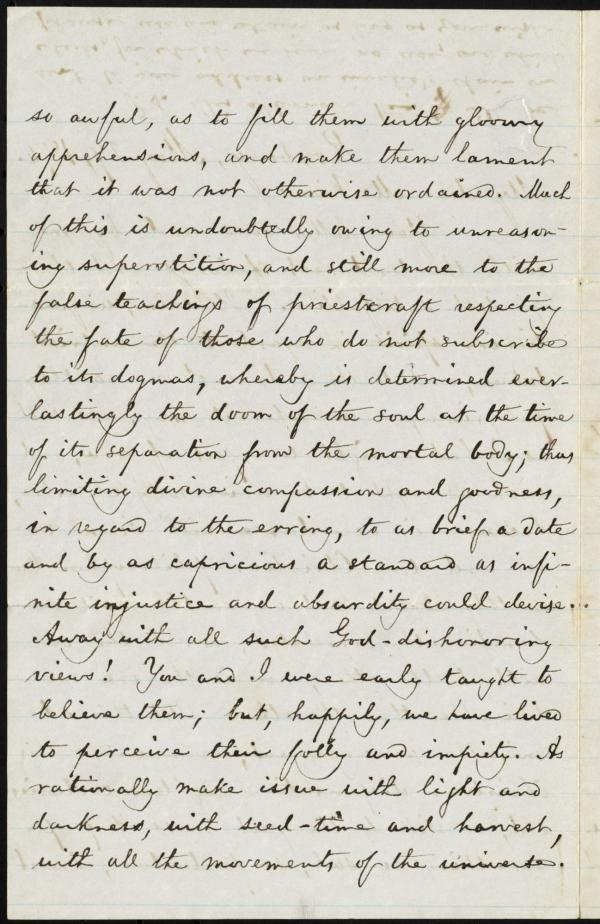 so awful, as to fill them with gloomy
apprehensions, and make them lament
that it was not otherwise ordained. Much
of this is undoubtedly owing to unreason-
ing superstition, and still more to the
false teachings of priestcraft respecting
the fate of those who do not subscribe
to its dogmas, whereby is determined ever-
lastingly the doom of the soul at the time
of its separation from the mortal body; thus
limiting divine compassion and goodness,
in regard to the erring, to as brief a date
and by as capricious a standard as infi-
nite injustice and absurdity could devise.
Away with all such God-dishonoring
views! You and I were early taught to
believe them; but, happily, we have lived
to perceive their folly and impiety. As
rationally make issue with light and
darkness, with seed-time and harvest,
with all the movements of the universe.